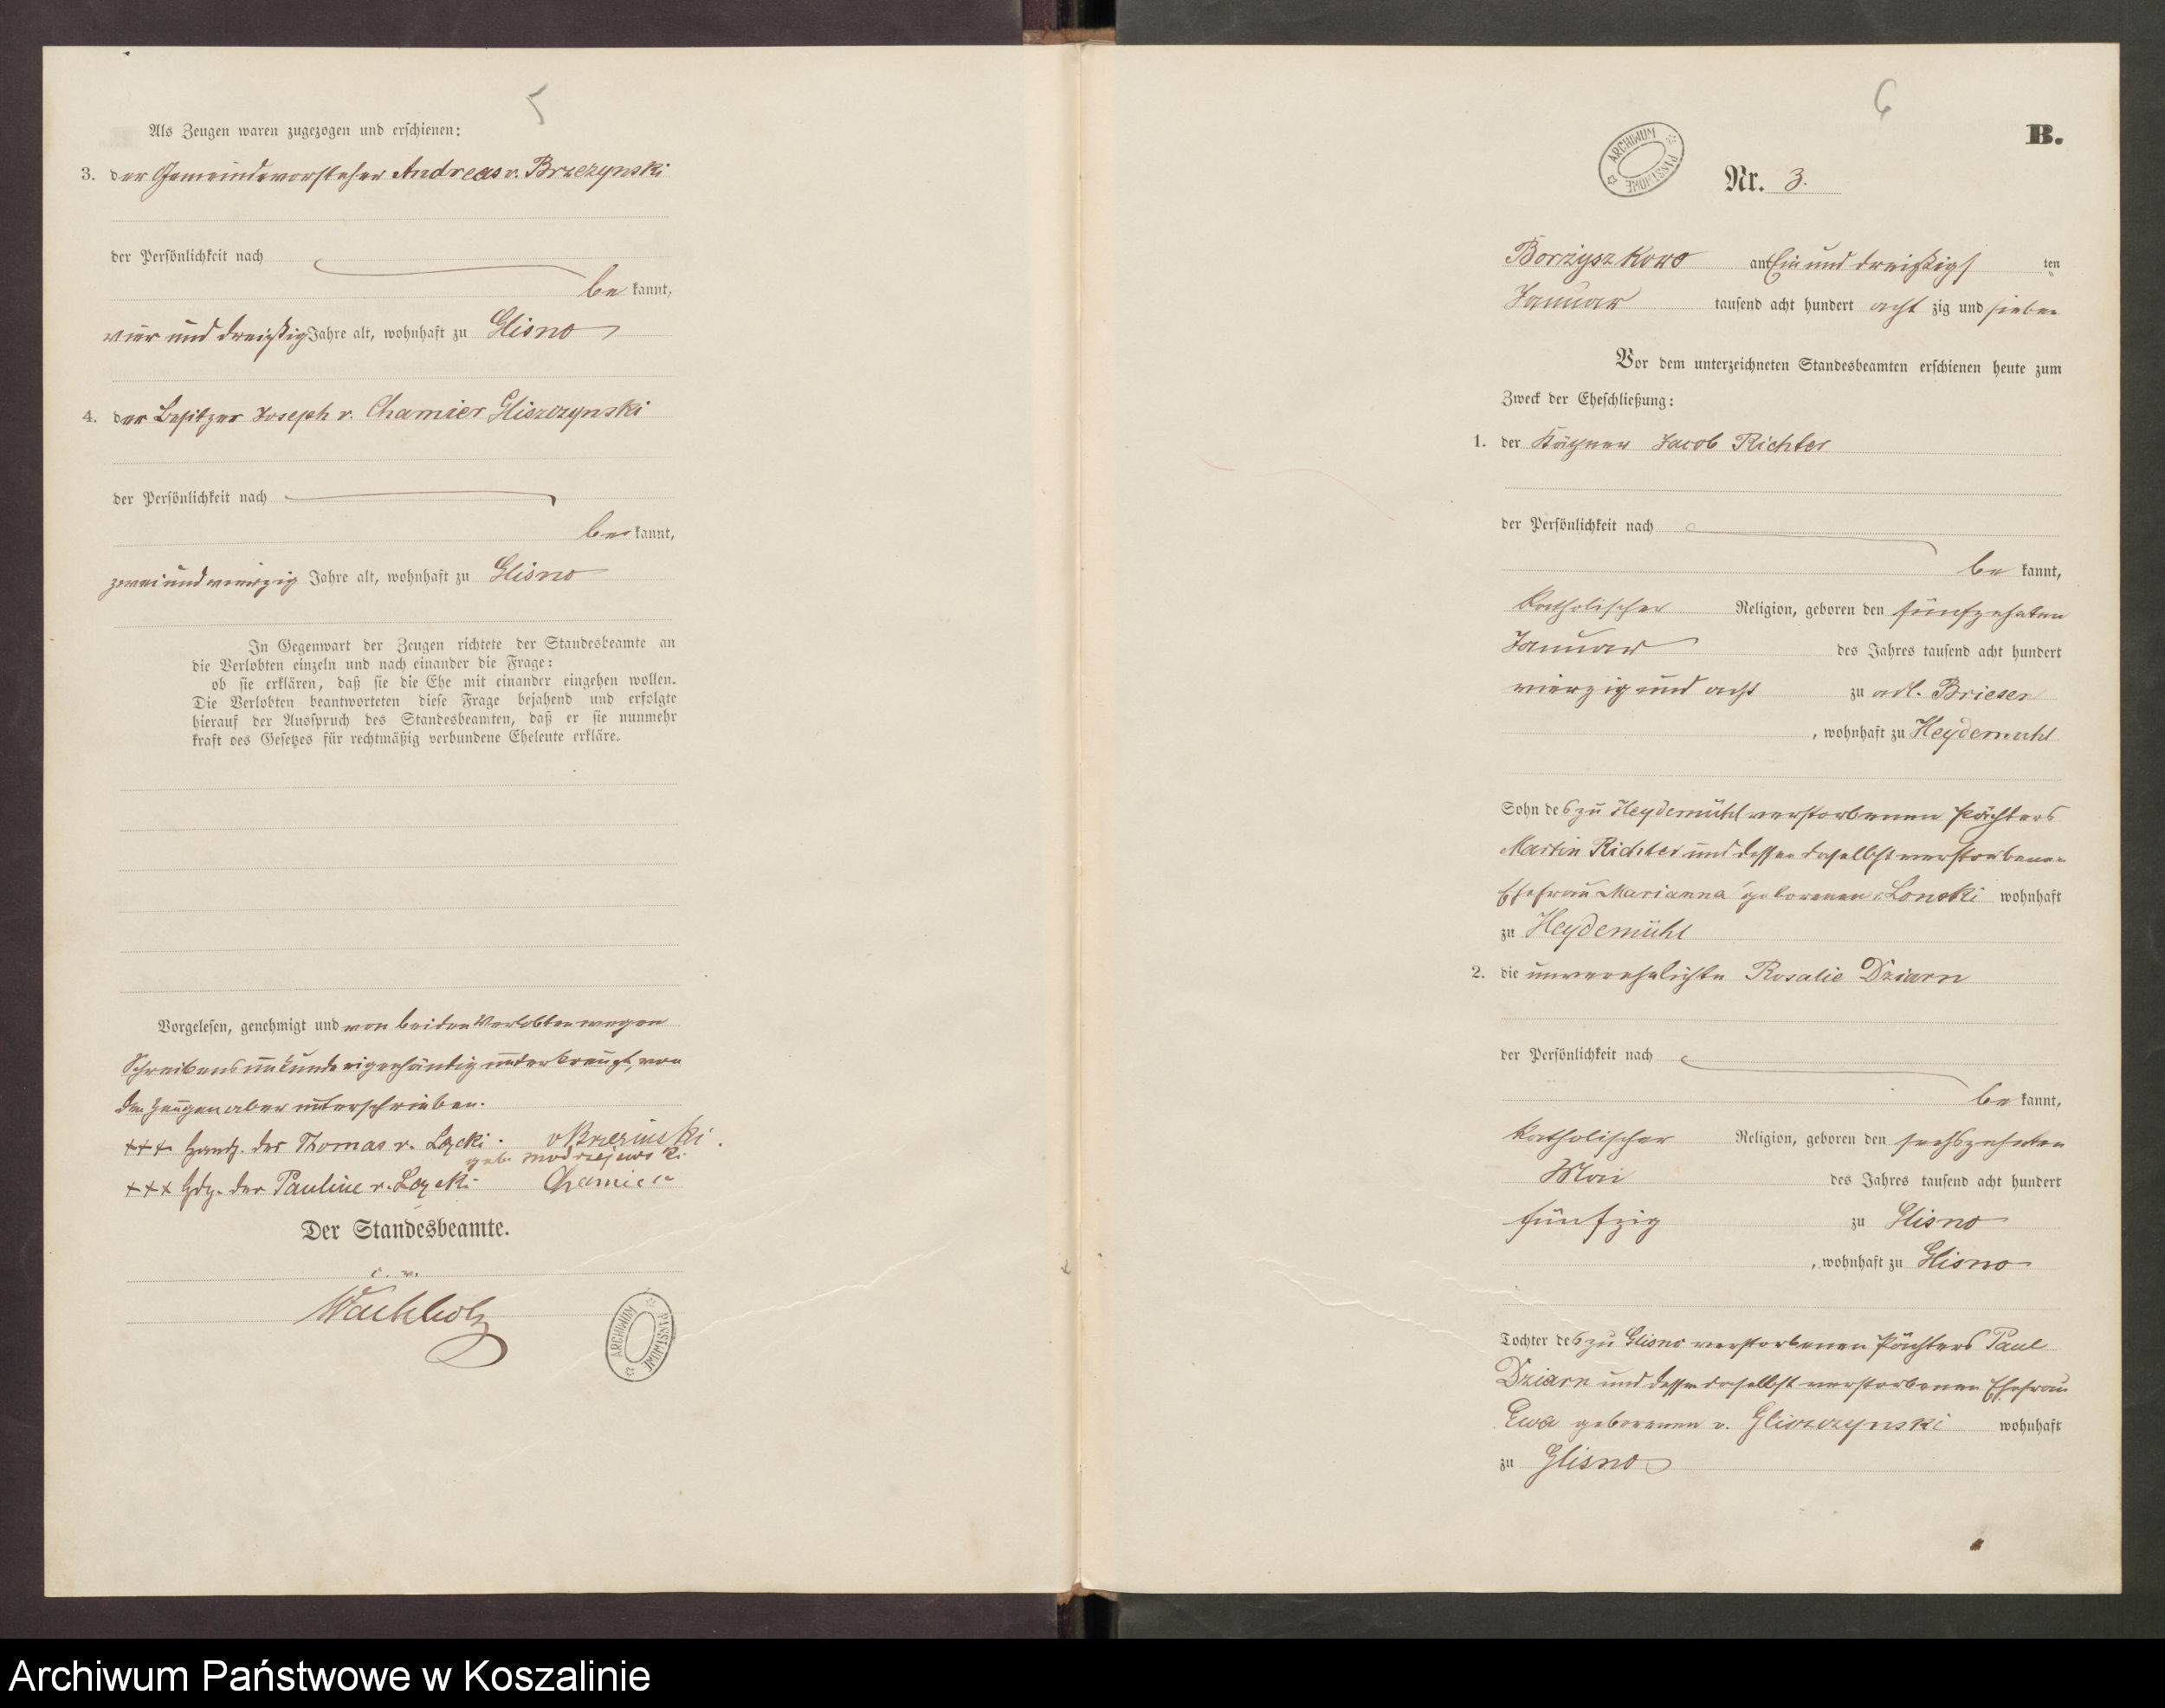 5
Als Zeugen waren zugezogen und erschienen:
3. der Gemeindevorsteher Andreas v. Brzezynski
der Persönlichkeit nach
be kannt,
vier und dreißig Jahre alt, wohnhaft zu Glisno
4. der Besitzer Joseph v. Chamier Gliszczynski
der Persönlichkeit nach
be kannt,
zwei und vierzig Jahre alt, wohnhaft zu Glisno
In Gegenwart der Zeugen richtete der Standesbeamte an
die Verlobten einzeln und nach einander die Frage:
ob sie erklären, daß sie die Ehe mit einander eingehen wollen.
Die Verlobten beantworteten diese Frage bejahend und erfolgte
hierauf der Ausspruch des Standesbeamten, daß er sie nunmehr
kraft des Gesetzes für rechtmäßig verbundene Eheleute erkläre.
Vorgelesen, genehmigt und von beiden Verlobten wegen
Schreibensunkunde eigenhändig unterkreuzt, von
den Zeugen aber unterschrieben.
+++ Handz. des Thomas v. Lęcki. v Brzezinski.
geb. Modrzejewski
+++ Hdz. der Pauline v. Lęcki Chamier
Der Standesbeamte.
Wachholz
ARCHIWUM PAŃSTWOWE
6
B.
ARCHIWUM PAŃSTWOWE
Nr. 3.
Borzyszkowo am Ein und dreißigs ten
Januar tausend acht hundert acht zig und sieben
Vor dem unterzeichneten Standesbeamten erschienen heute zum
Zweck der Eheschließung:
1. der Käthner Jacob Richter
der Persönlichkeit nach
be kannt,
katholischer Religion, geboren den fünfzehnten
Januar des Jahres tausend acht hundert
vierzig und acht zu adl. Briesen
, wohnhaft zu Heydemühl
Sohn des zu Heydemühl verstorbenen Pächters
Martin Richter und dessen daselbst verstorbenen
Ehefrau Marianna geborenen Lonski wohnhaft
zu Heydemühl
2. die unverehelichte Rosalie Dziarn
der Persönlichkeit nach
be kannt,
katholischer Religion, geboren den sechszehnten
Mai des Jahres tausend acht hundert
fünfzig zu Glisno
, wohnhaft zu Glisno
Tochter des zu Glisno verstorbenen Pächters Paul
Dziarn und dessen daselbst verstorbenen Ehefrau
Ewa geborenen v. Gliszczynski wohnhaft
zu Glisno
Archiwum Państwowe w Koszalinie